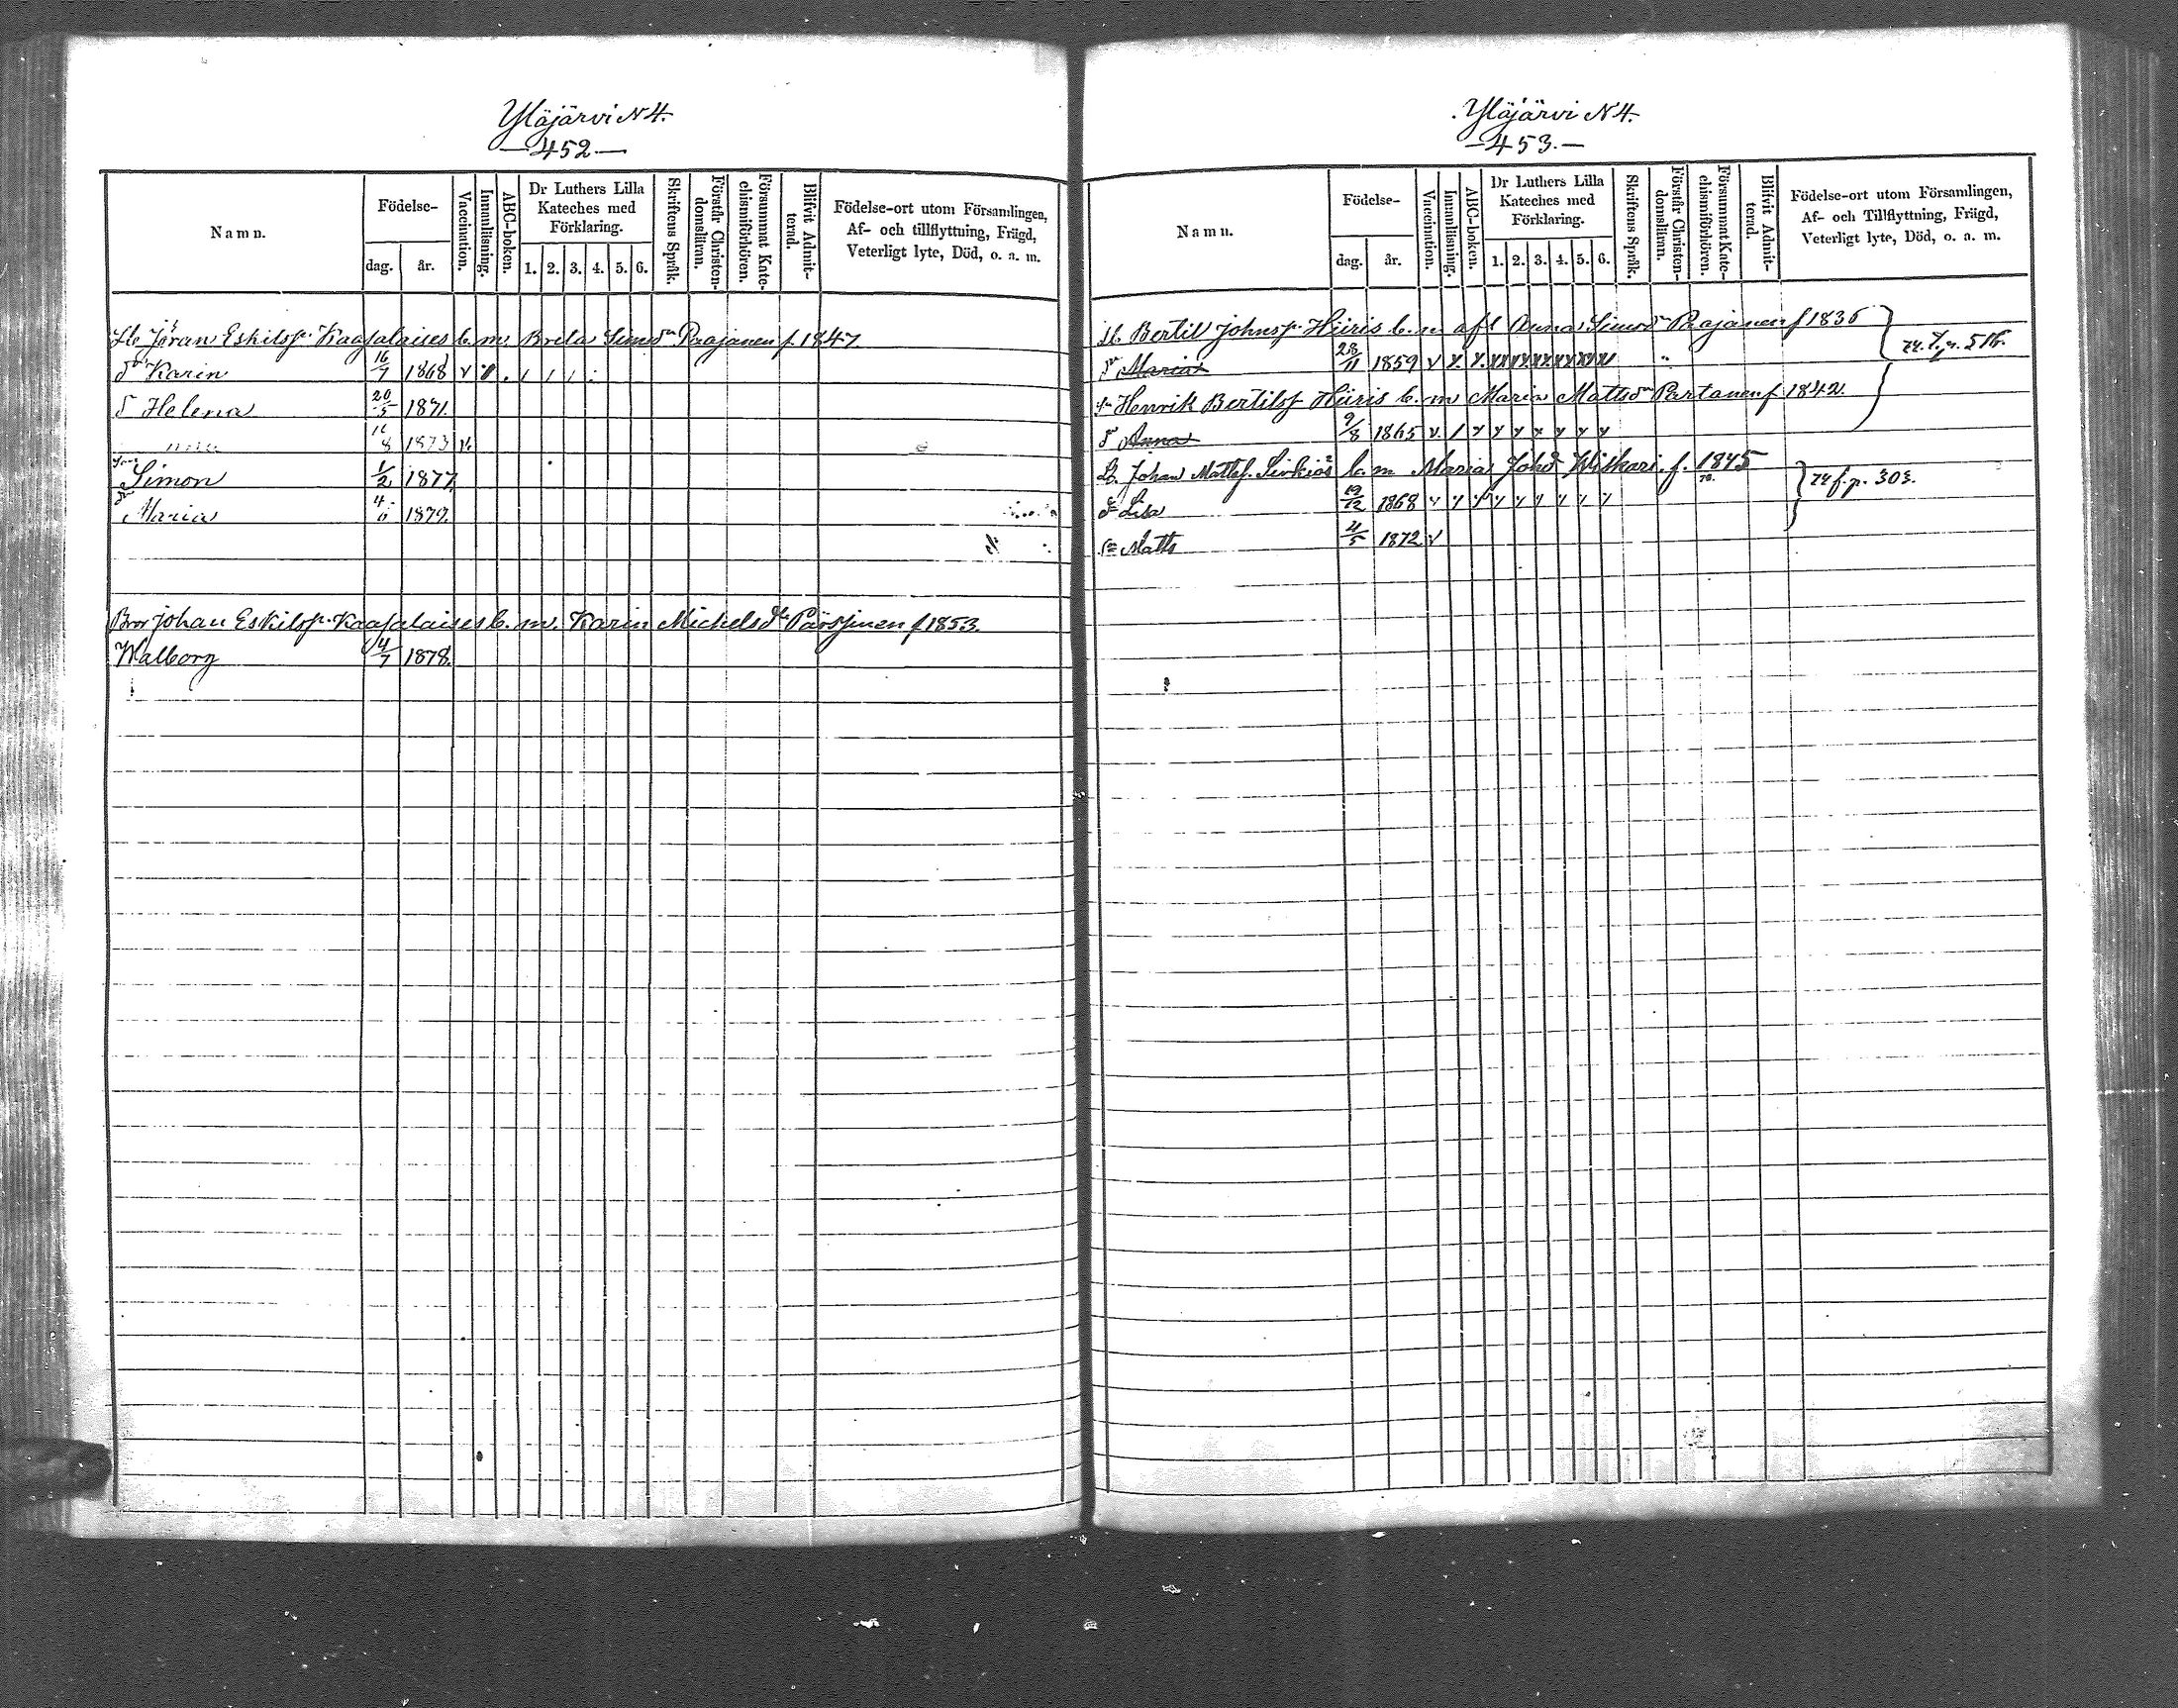 Yläjärvi N 4.
—452.—
Namn.
Födelse-
dag.
år.
Vaccination.
Innanläsning.
ABC-boken.
Dr Luthers Lilla
Kateches med
Förklaring.
1. 2. 3. 4. 5. 6.
Skriftens Språk.
Förstår Christen-
domsläran.
Försummat Kate-
chismiförhören.
Blifvit Admit-
terad.
Födelse-ort utom Församlingen,
Af- och tillflyttning, Frägd,
Veterligt lyte, Död, o. a. m.
Jöran Eskilsp. Kaajalaises b. m. Breta Simsdr Paajanen f. 1847.
dr Karin 16/7 1868 v
dr Helena 20/5 1871.
16/8 1873 v.
Son Simon 1/2 1877.
dr Maria 4/6 1879.
Bror Johan Eskilsp. Kaajalaises b. m. Karin Michelsdr Pärssinen f 1853.
Walborg 4/7 1878.
Yläjärvi N 4.
—453.—
Namn.
Födelse-
dag.
år.
Vaccination.
Innanläsning.
ABC-boken.
Dr Luthers Lilla
Kateches med
Förklaring.
1. 2. 3. 4. 5. 6.
Skriftens Språk.
Förstår Christen-
domsläran.
Försummat Kate-
chismiförhören.
Blifvit Admit-
terad.
Födelse-ort utom Församlingen,
Af- och Tillflyttning, Frägd,
Veterligt lyte, Död, o. a. m.
Bertil Johnsp. Hiiris b. m. afl Anna Simsdr Paajanen f 1836
dr Maria 28/11 1859 v
Henrik Bertilsp Hiiris b. m Maria Mattsdr Partanen f 1842.
dr Anna 9/8 1865 v.
Johan Mattsp. b. m Maria Johd Wiskari f. 1845
74 f. p. 303.
dr Lisa 19/12 1868 v
Sn Matts 4/5 1872 v